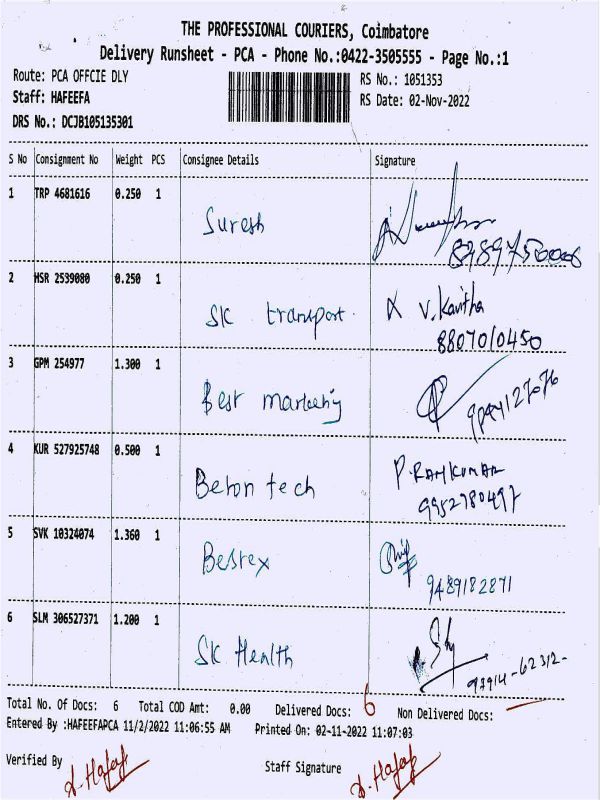 THE PROFESSIONAL COURIERS, Coimbatore
Delivery Runsheet - PCA - Phone No.:0422-3505555 - Page No.:1
Route: PCA OFFCIE DLY
RS No.: 1051353
Staff: HAFEEFA
RS Date: 02-Nov-2022
DRS No.: DCJB105135301
S No Consignment No Weight PCS Consignee Details Signature
1 TRP 4681616 0.250 1
Suresh
2 HSR 2539080 0.250 1
SK transport. V. Kavitha
8807010450
3 GPM 254977 1.300 1
Best marketing
4 KUR 527925748 0.500 1
P. RAMKUMAR
Beton tech 9952780497
5 SVK 10324074 1.360 1
Bestex
9489182871
6 SLM 306527371 1.200 1
SK Health
Total No. Of Docs: 6 Total COD Amt: 0.00 Delivered Docs: 6 Non Delivered Docs:
Entered By :HAFEEFAPCA 11/2/2022 11:06:55 AM Printed On: 02-11-2022 11:07:03
Verified By
Staff Signature